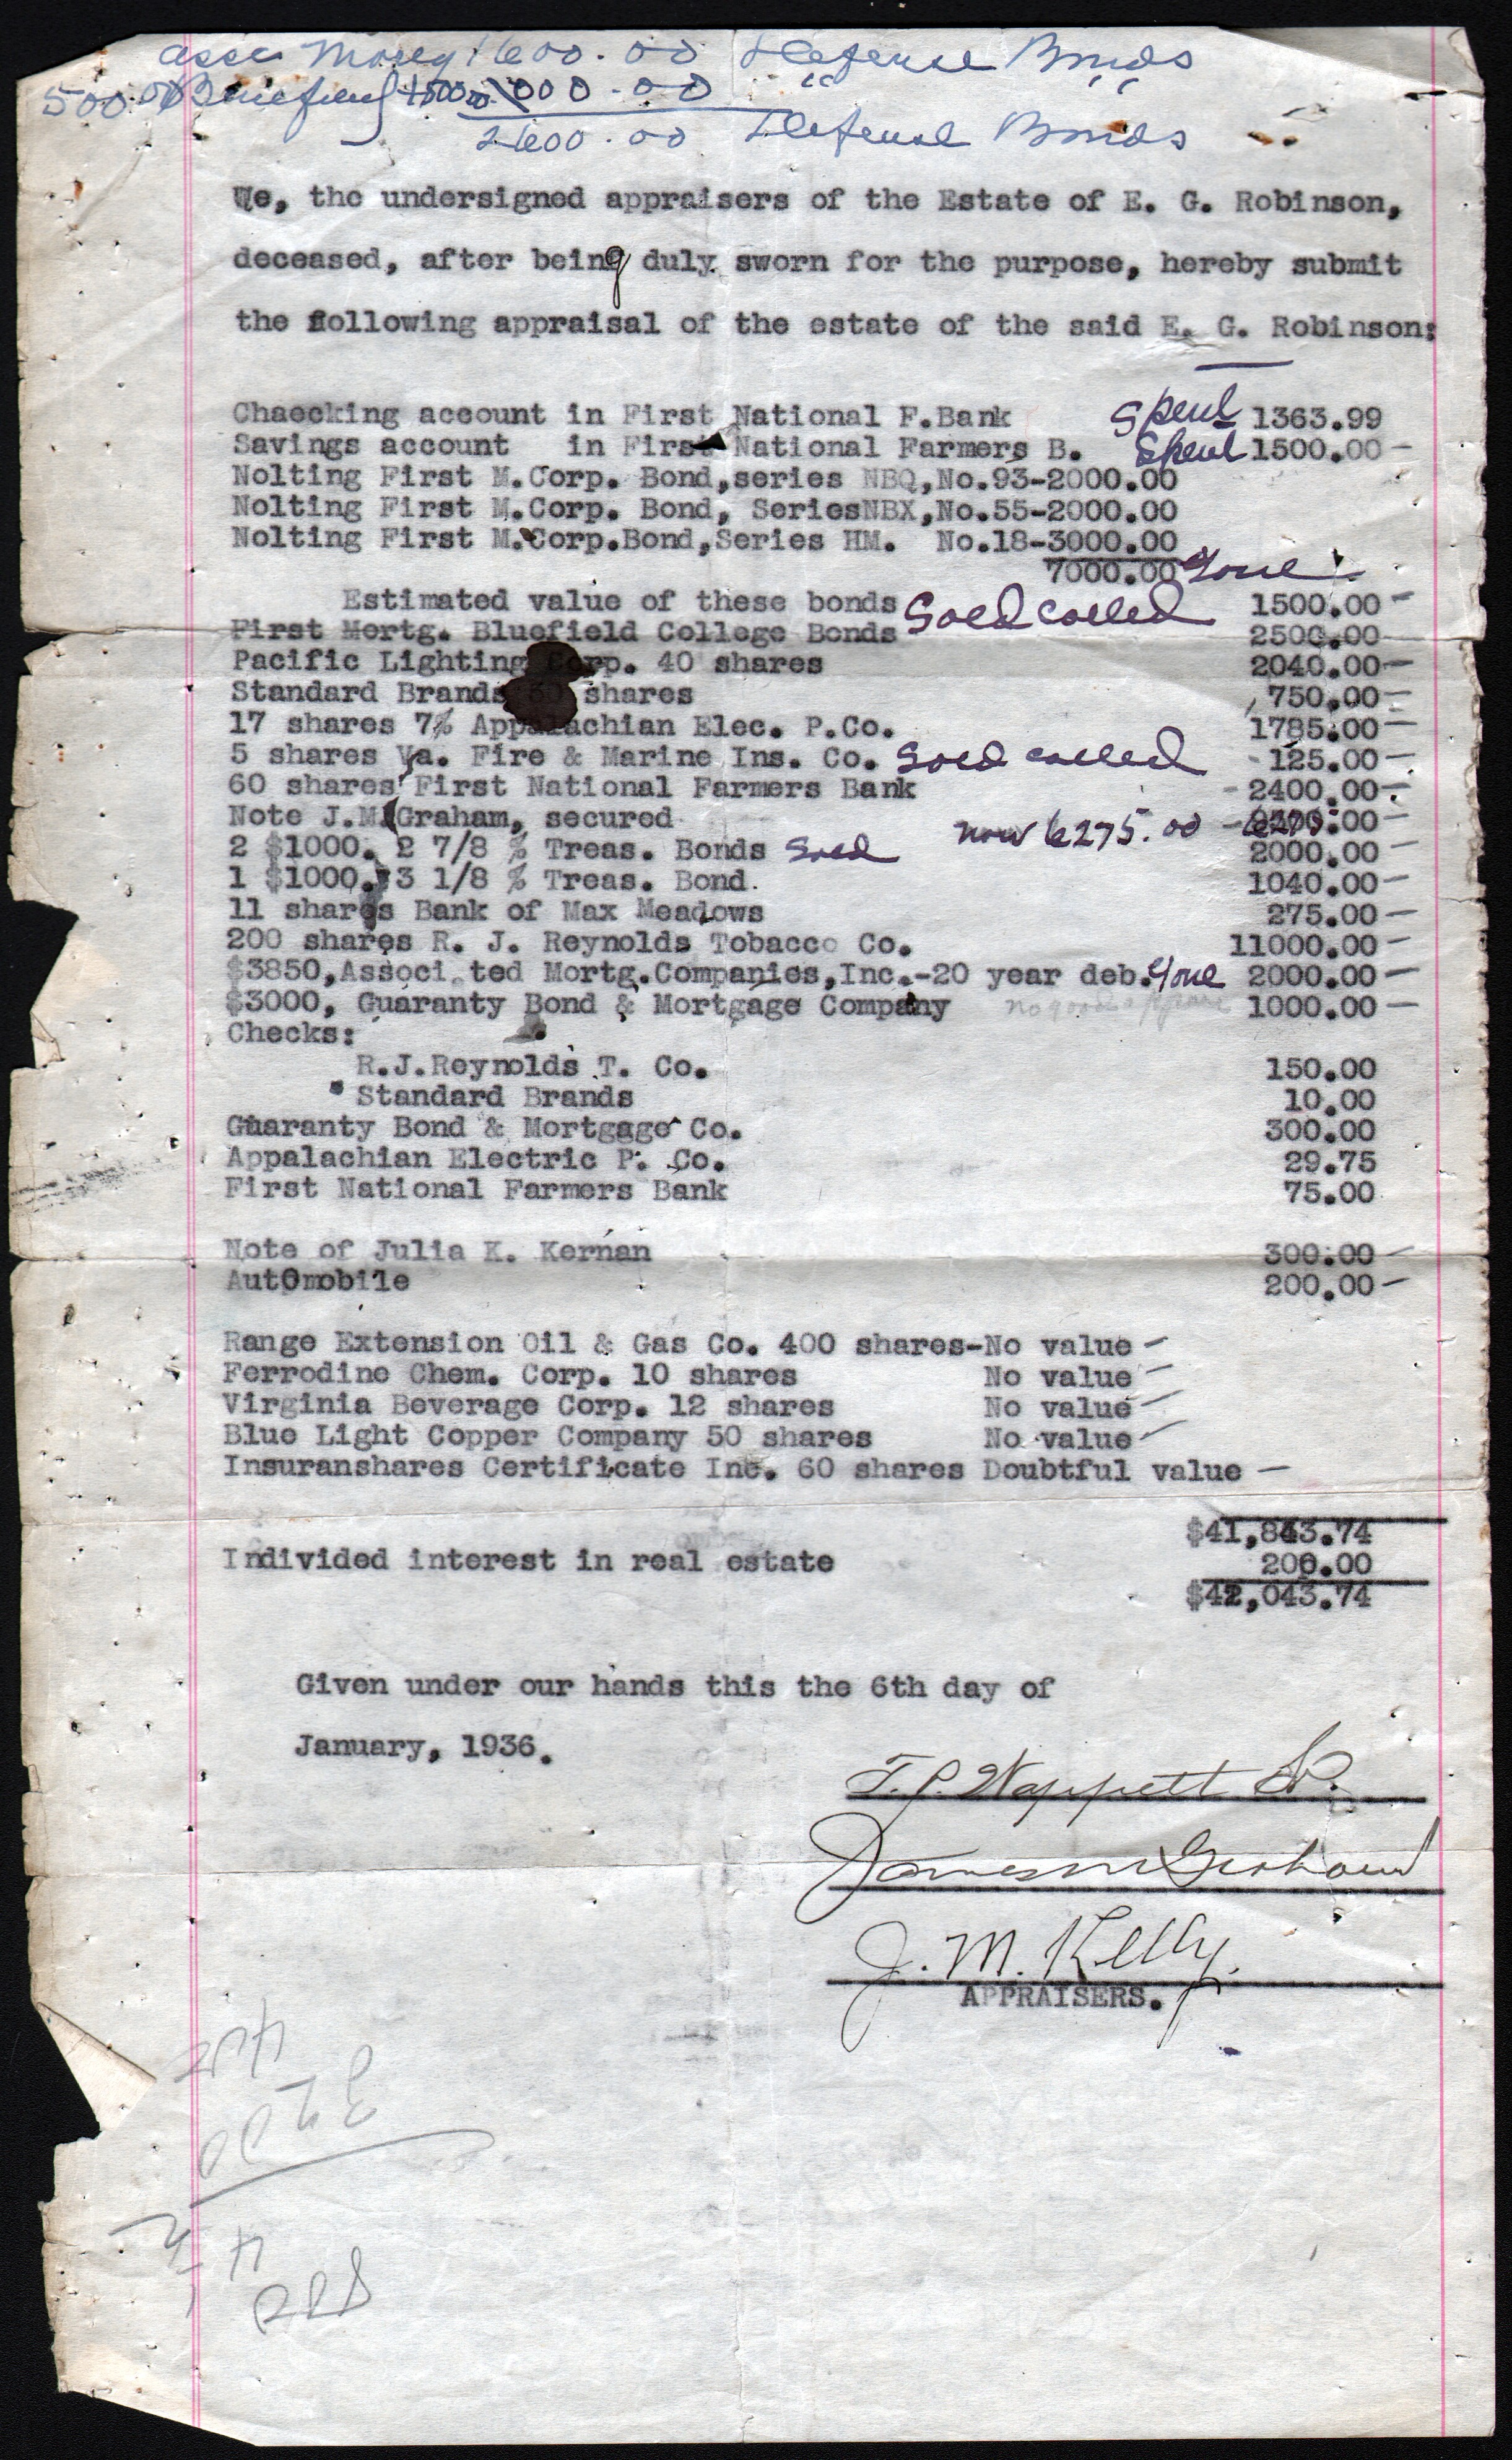 asse Money 1600.00 Defense Bonds
500.00 Bluefield 1500.00 1000.00 " "
2600.00 Defense Bonds
We, the undersigned appraisers of the Estate of E. G. Robinson,
deceased, after being duly sworn for the purpose, hereby submit
the following appraisal of the estate of the said E. G. Robinson:
Chaecking account in First National F.Bank Spent 1363.99
Savings account in First National Farmers B. Spent 1500.00-
Nolting First M.Corp. Bond,series NBQ,No.93-2000.00
Nolting First M.Corp. Bond, SeriesNBX,No.55-2000.00
Nolting First M.Corp.Bond,Series HM. No.18-3000.00
7000.00 gone
Estimated value of these bonds 1500.00-
First Mortg. Bluefield College Bonds Sold called 2500.00-
Pacific Lighting Corp. 40 shares 2040.00-
Standard Brands 50 shares 750.00-
17 shares 7% Appalachian Elec. P.Co. 1785.00-
5 shares Va. Fire & Marine Ins. Co. Sold called 125.00-
60 shares First National Farmers Bank 2400.00-
Note J.M.Graham, secured now 6275.00
2 $1000. 2 7/8 % Treas. Bonds Sold 2000.00-
1 $1000. 3 1/8 % Treas. Bond. 1040.00-
11 shares Bank of Max Meadows 275.00-
200 shares R. J. Reynolds Tobacco Co. 11000.00-
$3850,Associ ted Mortg.Companies,Inc.-20 year deb. gone 2000.00-
$3000, Guaranty Bond & Mortgage Company no good 1000.00-
Checks:
R.J.Reynolds T. Co. 150.00
Standard Brands 10.00
Guaranty Bond & Mortgage Co. 300.00
Appalachian Electric P. Co. 29.75
First National Farmers Bank 75.00
Note of Julia K. Kernan 300.00-
AutOmobile 200.00-
Range Extension Oil & Gas Co. 400 shares-No value-
Ferrodine Chem. Corp. 10 shares No value-
Virginia Beverage Corp. 12 shares No value-
Blue Light Copper Company 50 shares No value-
Insuranshares Certificate Inc. 60 shares Doubtful value-
$41,843.74
Individed interest in real estate 200.00
$42,043.74
Given under our hands this the 6th day of
January, 1936.
James M Graham
J. M. Kelly.
APPRAISERS.